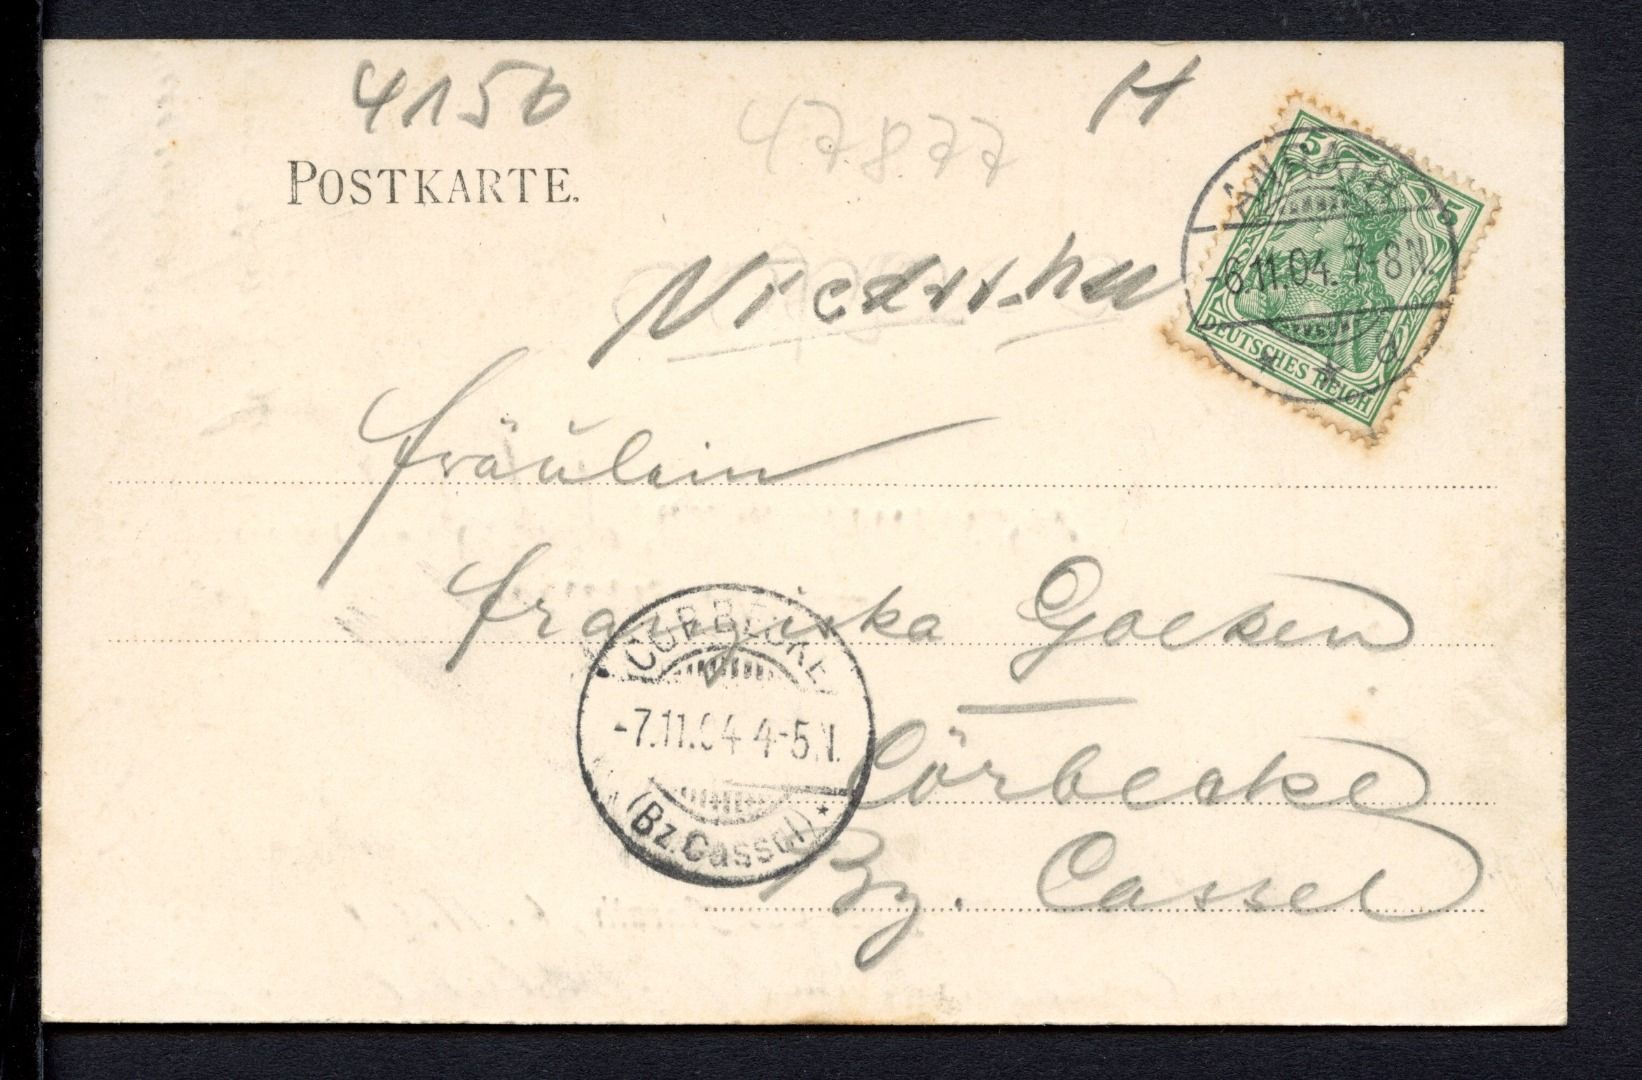 4156
H
47877
POSTKARTE.
5 5
-6.11.04. 7-8N.
d
DEUTSCHES REICH
Fräulein
Franziska Goeken
Cörbecke
Bz. Cassel
CÖRBECKE
-7.11.04 4-5.N.
(Bz. Cassel)